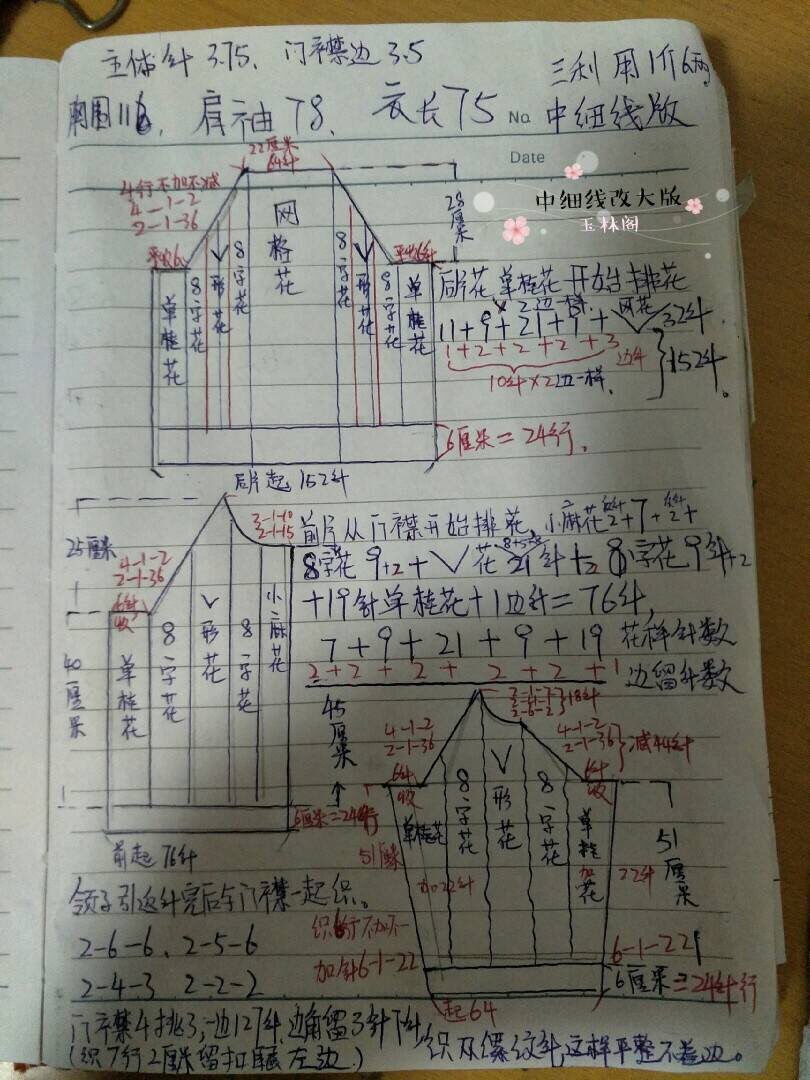 主体针 3.75、门襟边 3.5
三利 用1斤6两
胸围116、肩袖78、衣长75 No. 中细线版
Date
中细线改大版
玉林阁
22厘米
64针
4行不加不减
4-1-2
2-1-36
平收6
平收6针
28厘米
单桂花
8字花
V形花
8字花
网格花
8字花
V形花
8字花
单桂花
后片花 单桂花开始排花
2边一样
11+9+21+9+
网花
32针
1+2+2+2+3边针
10针×2边一样
152针。
6厘米=24行。
后片起152针
25厘米
4-1-2
2-1-36
6针收
2-1-15
40厘米
单桂花
8字花
V形花
8字花
小麻花
前片从门襟开始排花,小麻花2+7+2+
8字花9+2+V花21针+2 8字花9针+2
+19针单桂花+1边针=76针,
7+9+21+9+19 花样针数
2+2+2+2+2+1 边留针数
6厘米=24行
前起76针
45厘米
4-1-2
2-1-36
6针收
4-1-2
2-1-36
减44针
6针收
单桂花
8字花
V形花
8字花
单桂花
加22针
加
22针
51厘米
51厘米
织6行不加不
加针6-1-22
6-1-22
6厘米=24针行
起64
领子引返针完后与门襟一起织。
2-6-6、2-5-6
2-4-3 2-2-2
门襟4挑3,一边127针,边角留3针下针
(织7行2厘米留扣眼左边)
织双缧纹针,这样平整不卷边。